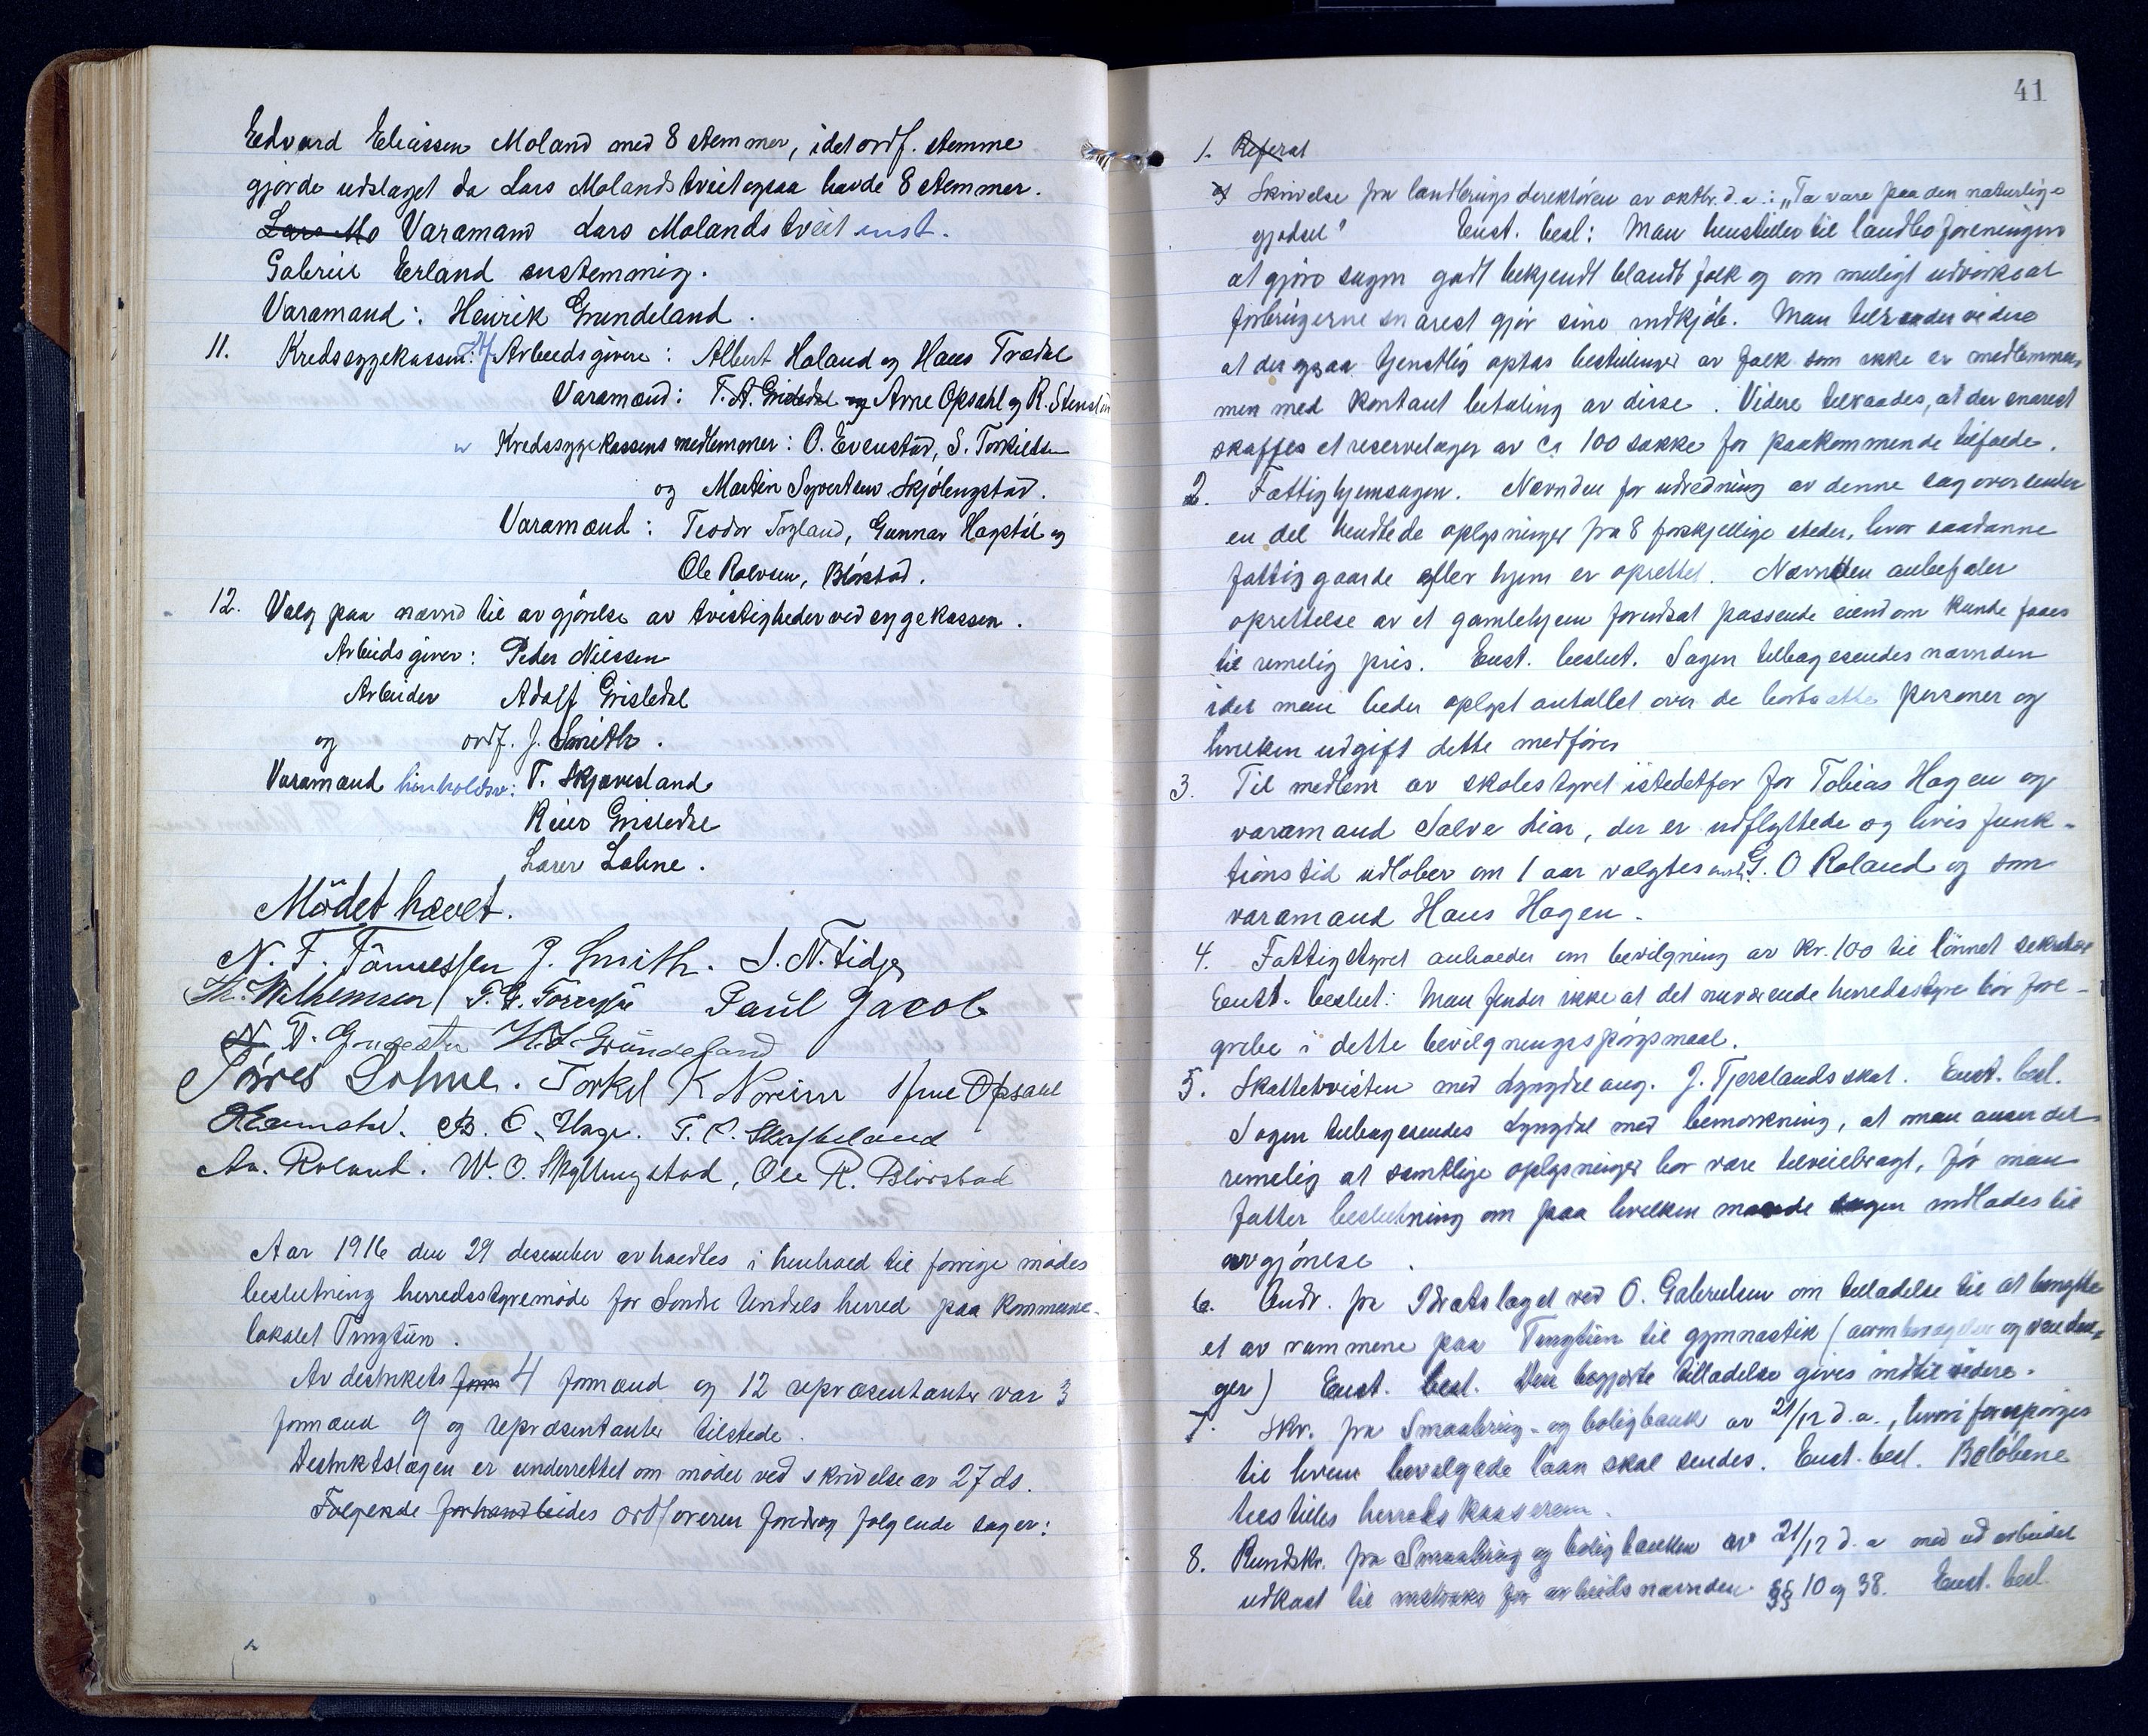 Edvard Eliassen Moland med 8 stemmer, idet ordf. stemme
gjorde udslaget da Lars Molandstveit ogsaa havde 8 stemmer.
Lars Mo Varamand Lars Molandstveit enst.
Gabriel Erland enstemmig.
Varamand: Henrik Grundeland.
11. Kredssygekassen: Arbeidsgivere: Albert Holand og Hans Trædal
Varamænd: T. A. Grisledal og Arne Opsahl og R. Stenslan
Kredssygekassens medlemmer: O. Evenstad, S. Torkildsen
og Martin Syvertsen Skjólengstad.
Varamænd: Teodor Tryland, Gunnar Hagstøl og
Ole Rolvsen, Blörstad.
12. Valg paa nævnd til avgjörelse av tvistigheder ved sygekassen.
Arbeidsgiver: Peder Nilssen
Arbeider Adolf Grisledal
og ordf. J. Smith.
Varamænd henholdsv: T. Skjævesland
Reier Grisledal
Lærer Lohne.
Mödet hævet.
N. T. Tönnessen J. Smith. S. N. Lidje
Th. Wilhemsen T. G. Paul Jacob
N. T. H. L. Gründeland
Torres Lohne. Torkel K Noreim Arne Opsahl
B. O. Hage. T. C. Skofteland
An. Roland. W. O. Skyllingstad, Ole R. Blörstad
Aar 1916 den 29 desember avholdtes i henhold til forrige mödes
beslutning herredsstyremöde for Sondre Undals herred paa kommune-
lokalet Tingtün.
Av destriktets form 4 formænd og 12 repræsentanter var 3
formænd 9 og repræsentanter tilstede.
Destriktslægen er underrettet om mödet ved skrivelse av 27 ds.
Følgende forhandleides ordföreren foredrog folgende sager:
41
1. Referat
a) Skrivelse fra landbrugsdirektören av oktbr. d. a.: „Ta vare paa den naturlige
gjødsel" Enst. besl: Man henstiller til landboforeningen
at gjöre sagen godt bekjendt blandt folk og om muligt udvirke at
forbrügerne snarest gjör sine indkjöb. Man tilraader videre
at der ogsaa tjenstlig optas bestillinger av folk som ikke er medlemmer,
men med kontant betaling av disse. Videre tilraades, at der snarest
skaffes et reservelager av ca 100 sække for paakommende tilfælde.
2. Fattighjemsagen. Nævnden for udredning av denne sag oversender
en del hendtede oplysninger fra 8 forskjellige steder, hvor saadanne
fattiggaarde eller hjem er oprettet. Nævnden anbefaler
oprettelse av et gamlehjem forudsat passende eiendom kunde faaes
til rimelig pris. Enst. beslut. Sagen tilbagesendes nævnden
idet man beder oplyst antallet over de bortsatte personer og
hvilken udgift dette medförer
3. Til medlem av skolestyret istedetfor for Tobias Hagen og
varamand Salve Lian, der er udflyttede og hvis funk-
tionstid udlöber om 1 aar valgtes enst. G. O Roland og som
varamand Hans Hagen.
4. Fattigstyret anholder om bevilgning av kr. 100 til lönnet sekretær
Enst. beslut: Man finder ikke at det nuværende herredsstyre bör fore-
gribe i dette bevilgningsspörgsmaal.
5. Skattetvisten med Lyngdal ang. J. Tjerslands skat. Enst. besl.
Sagen tilbagesendes Lyngdal med bemerkning, at man anser det
rimelig at samtlige oplysninger bör være tilveiebragt, för man
fatter beslutning om paa hvilken maade sagen indlades til
avgjörelse.
6. Andr. fra Idrætslaget ved O. Gabrielsen om tilladelse til at benytte
et av rummene paa Tingtün til gymnastik (armbevægelser og vendin-
ger) Enst. besl. Den begjærte tilladelse gives indtil videre.
7. Skr. fra Smaabrüg- og boligbank av 21/12 d. a., hvori forespörges
til hvem bevilgede laan skal sendes. Enst. besl. Belöbene
tilstilles herredskassereren.
8. Rundskr. fra Smaabrüg og boligbanken av 21/12 d. a med ud arbeidet
udkast til instruks for arbeidsnævnden §§ 10 og 38. Enst. besl.